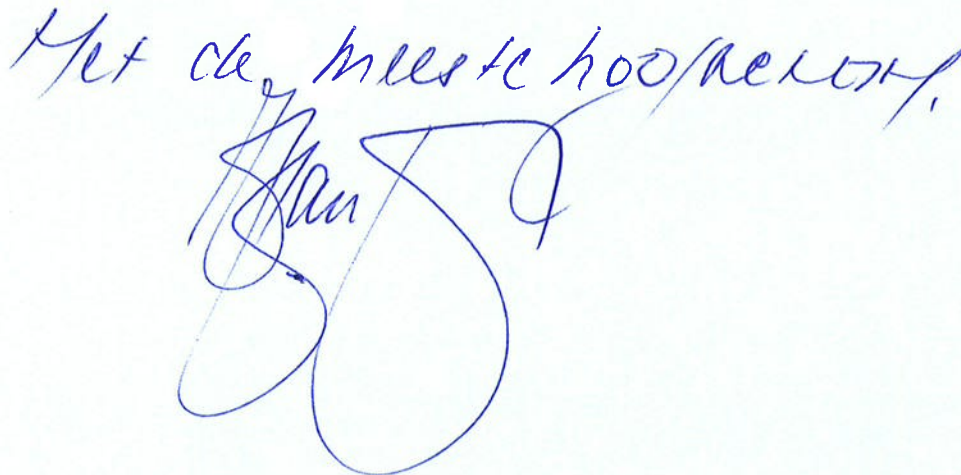 Met de meeste hoogachting,